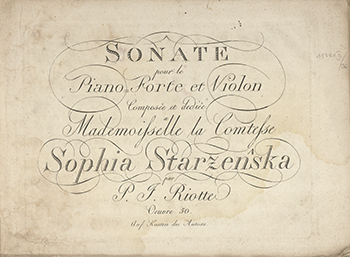 SONATE
pour le
Piano Forte et Violon
Composée et dediée
à
Mademoisselle la Comtesse
Sophia Starzeńska
par
P. J. Riotte
Oeuvre 50.
Auf Kosten des Autors.